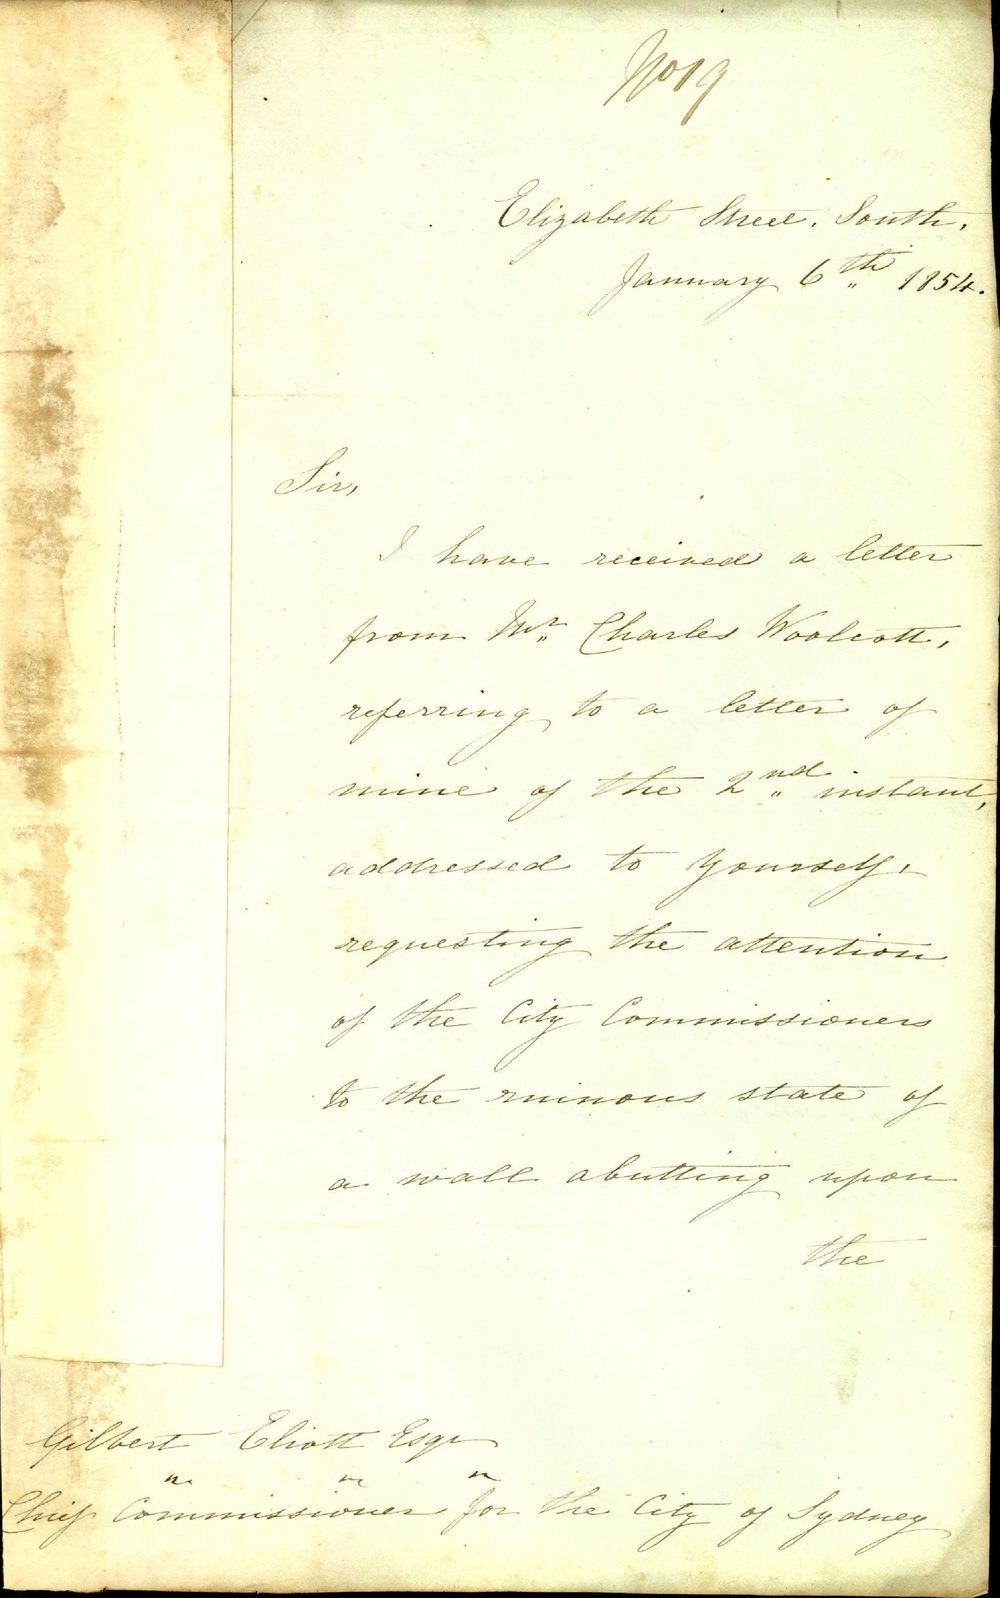 No 19
Elizabeth Street. South.
January 6th 1854.
Sir,
I have received a letter
from Mr. Charles Woolcott,
referring to a letter of
mine of the 2nd instant,
addressed to yourself,
requesting the attention
of the City Commissioners
to the ruinous state of
a wall abutting upon
the
Gilbert Eliott Esqr
" " "
Chief Commissioner for the City of Sydney